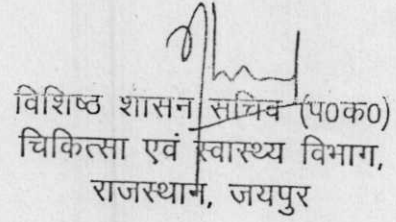 विशिष्ठ शासन सचिव (प०क०)
चिकित्सा एवं स्वास्थ्य विभाग,
राजस्थान, जयपुर